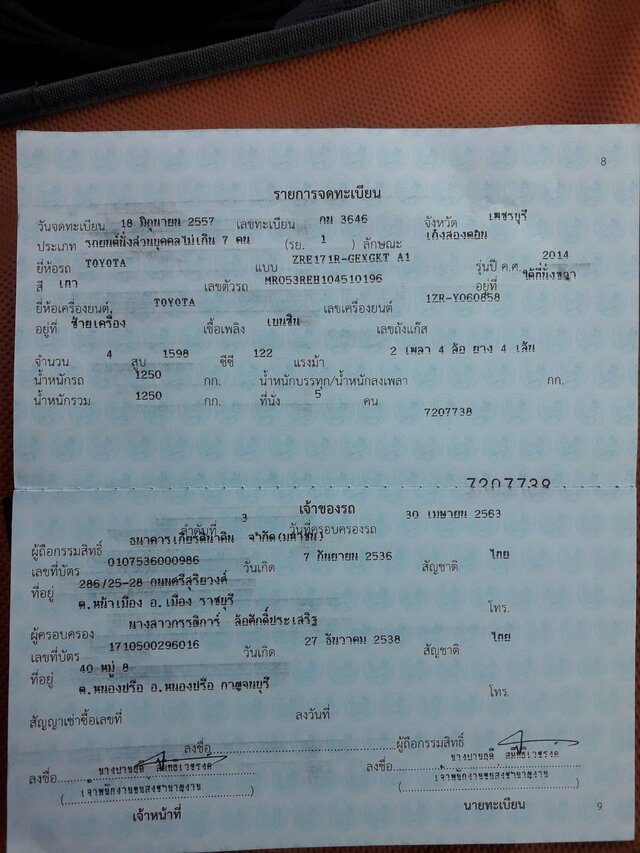 8
รายการจดทะเบียน
วันจดทะเบียน 18 มิถุนายน 2557 เลขทะเบียน กน 3646 จังหวัด เพชรบุรี
ประเภท รถยนต์นั่งส่วนบุคคลไม่เกิน 7 คน (รย. 1 ) ลักษณะ เก๋งสองตอน
ยี่ห้อรถ TOYOTA แบบ ZRE171R-GEXGKT A1 รุ่นปี ค.ศ. 2014
สี เทา เลขตัวรถ MR053REH104510196 อยู่ที่ ใต้ที่นั่งขวา
ยี่ห้อเครื่องยนต์ TOYOTA เลขเครื่องยนต์ 1ZR-Y060858
อยู่ที่ ซ้ายเครื่อง เชื้อเพลิง เบนซิน เลขถังแก๊ส
จำนวน 4 สูบ 1598 ซีซี 122 แรงม้า 2 เพลา 4 ล้อ ยาง 4 เส้น
น้ำหนักรถ 1250 กก. น้ำหนักบรรทุก/น้ำหนักลงเพลา กก.
น้ำหนักรวม 1250 กก. ที่นั่ง 5 คน
7207738
7207738
เจ้าของรถ
ลำดับที่ 3 วันที่ครอบครองรถ 30 เมษายน 2563
ผู้ถือกรรมสิทธิ์ ธนาคารเกียรตินาคิน จำกัด(มหาชน)
เลขที่บัตร 0107536000986 วันเกิด 7 กันยายน 2536 สัญชาติ ไทย
ที่อยู่ 286/25-28 ถนนศรีสุริยวงศ์
ต.หน้าเมือง อ.เมือง ราชบุรี โทร.
ผู้ครอบครอง นางสาวกรรณิการ์ ล้อศักดิ์ประเสริฐ
เลขที่บัตร 1710500296016 วันเกิด 27 ธันวาคม 2538 สัญชาติ ไทย
ที่อยู่ 40 หมู่ 8
ต.หนองปรือ อ.หนองปรือ กาญจนบุรี โทร.
สัญญาเช่าซื้อเลขที่ ลงวันที่
ลงชื่อ ผู้ถือกรรมสิทธิ์
ลงชื่อ ลงชื่อ
(เจ้าพนักงานขนส่งชำนาญงาน) (เจ้าพนักงานขนส่งชำนาญงาน)
เจ้าหน้าที่ นายทะเบียน
9